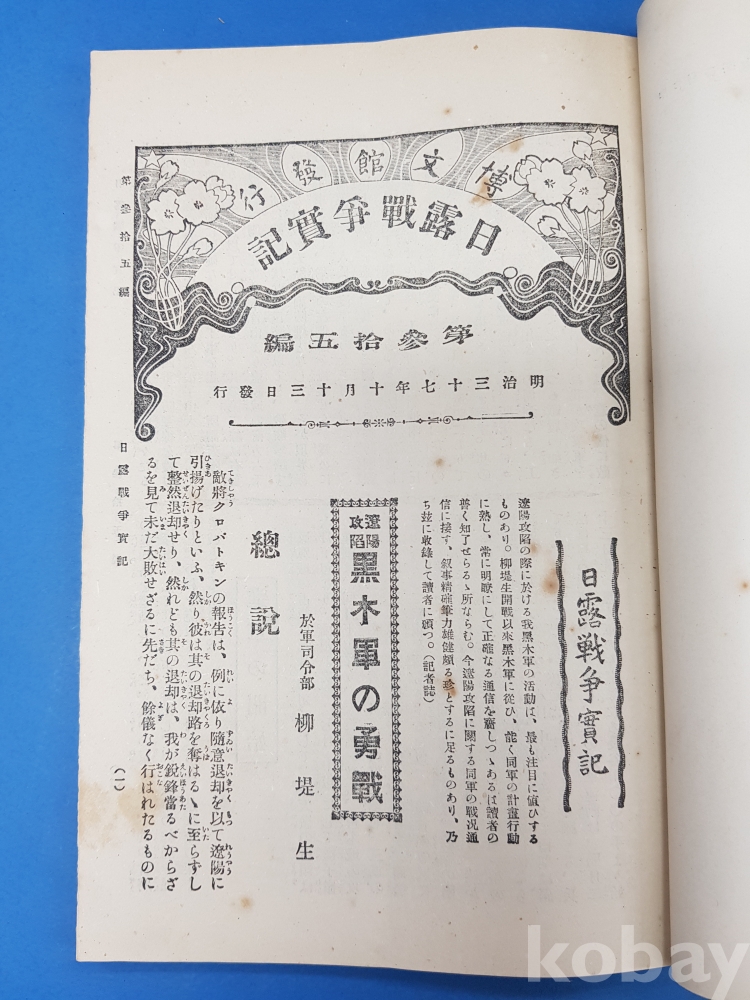 博文館發行
日露戰爭實記
第參拾五編
明治三十七年十月十三日發行
第參拾五編
日露戰爭實記
(一)
日露戰爭實記
遼陽攻陷の際に於ける我黑木軍の活動は、最も注目に値ひする
ものあり。柳堤生開戰以來黑木軍に從ひ、能く同軍の計畫行動
に熟し、常に明瞭にして正確なる通信を齎しつゝあるは讀者の
普く知了せらるゝ所ならむ。今遼陽攻陷に關する同軍の戰況通
信に接す、叙事精確筆力雄健頗る珍とするに足るものあり、乃
ち玆に收錄して讀者に頒つ。(記者誌)
遼陽攻陷 黑木軍の勇戰
於軍司令部 柳堤生
總說
敵將クロパトキンの報告は、例に依り隨意退却を以て遼陽に
引揚げたりといふ、然り彼は其の退却路を奪はるゝに至らずし
て整然退却せり、然れども其の退却は、我が銳鋒當るべからざ
るを見て未だ大敗せざるに先だち、餘儀なく行はれたるものに
kobay